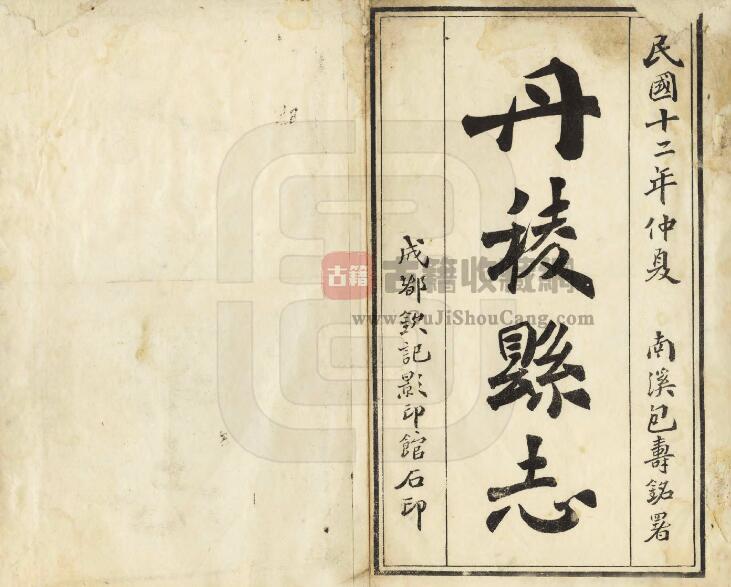 民國十二年仲夏 南溪包壽銘署
丹稜縣志
成都欽記影印館石印
古籍
古籍收藏網
www.GuJiShouCang.com